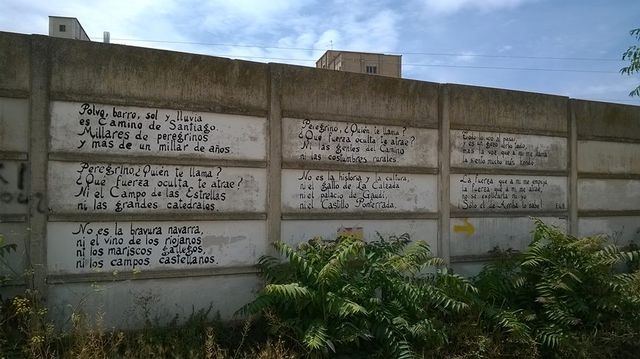 Polvo, barro, sol y lluvia
es Camino de Santiago.
Millares de peregrinos
y más de un millar de años.
Peregrino ¿Quien te llama?
¿Que fuerza oculta te atrae?
Ni el Campo de las Estrellas
ni las grandes catedrales.
No es la bravura navarra,
ni el vino de los riojanos
ni los mariscos gallegos,
ni los campos castellanos.
Peregrino, ¿Quien te llama?
¿Que fuerza oculta te atrae?
Ni las gentes del Camino
ni las costumbres rurales.
No es la historia y la cultura,
ni el gallo de La Calzada
ni el palacio de Gaudi,
ni el Castillo Ponferrada.
Todo lo veo al pasar,
y es un gozo verlo todo
mas la voz que a mi me llama
la siento mucho mas hondo.
La fuerza que a mi me empuja
la fuerza que a mi me atrae,
no se explicarla ni yo
Solo el de Arriba lo sabe!